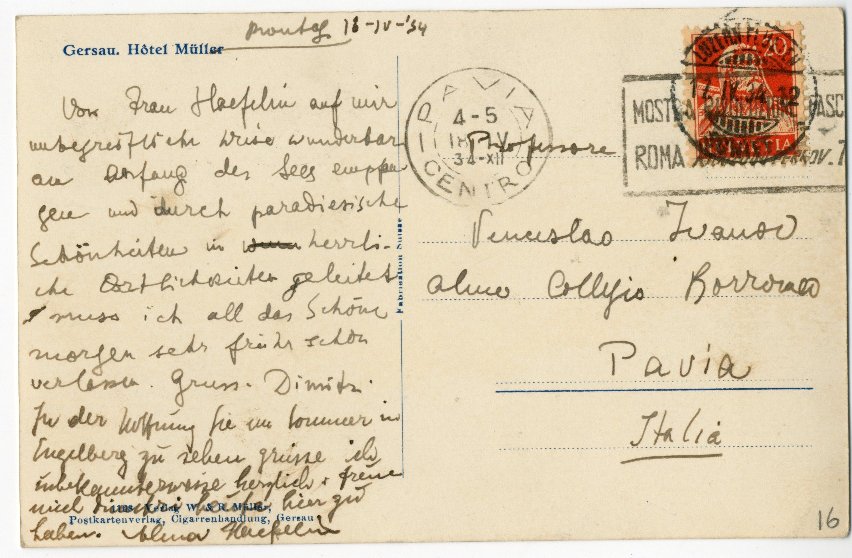 Gersau. Hôtel Müller
18-IV-'34
Von Frau Haefelin auf mir
unbegreifliche weise wunderbar
am Anfang des Sees empfan
gen und durch paradiesische
Schönheiten in herrli-
che Örtlichkeiten geleitet
muss ich all das Schöne
morgen sehr früh schon
verlassen. Gruss. Dimitri.
In der Hoffnung Sie im Sommer in
Engelberg zu sehen grüsse ich
unbekannterweise herzlich & freue
mich hier zu
haben. Alma Haefelin
Verlag W. & R. Müller,
Postkartenverlag, Cigarrenhandlung, Gersau
Fabrication Suisse
PAVIA
4-5
18 IV
34-XII
CENTRO
20
LUZERN
17.IV.34.12
MOSTRA
ROMA
Professore
Venceslao Ivanov
Almo Collegio Borromeo
Pavia
Italia
16